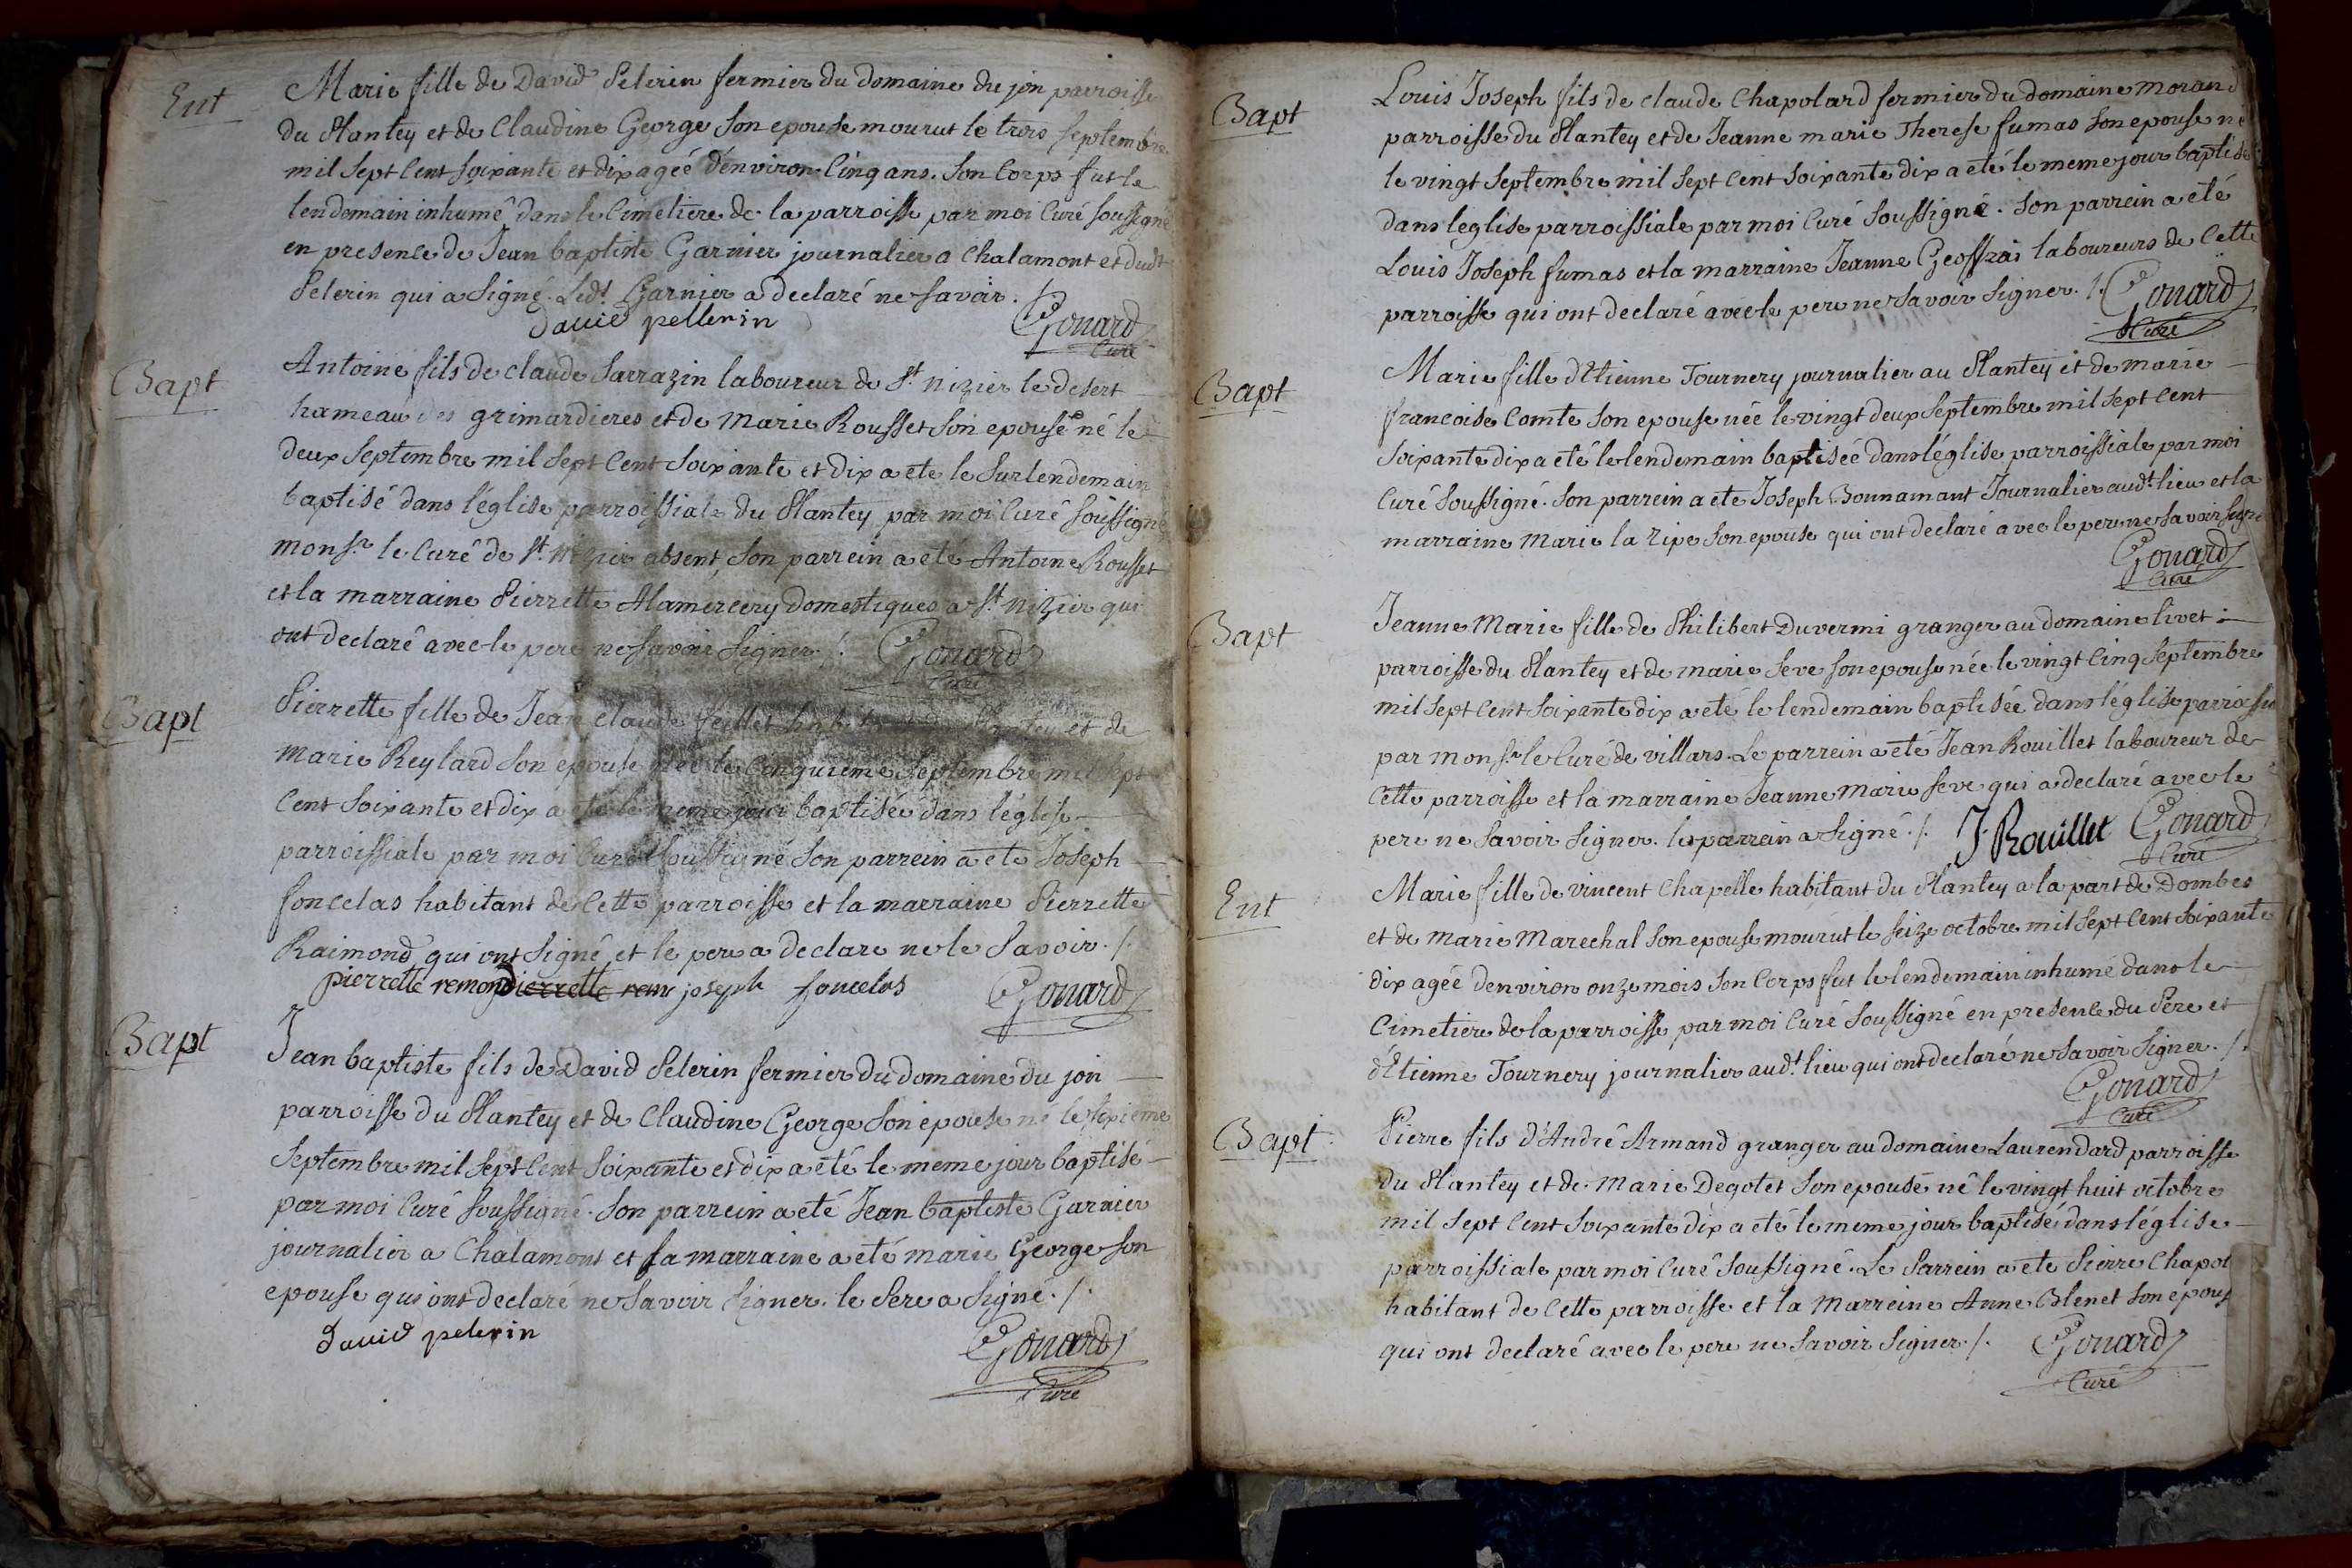 Ent
Marie fille de David Pelerin fermier du domaine du jon parroisse
du Plantey et de Claudine George son epouse mourut le trois septembre
mil sept cent soixante et dix ageé d'environ cinq ans. son corps fut le
lendemain inhumé dans le cimetiere de la parroisse par moi curé soussigné
en presence de Jean baptiste Garnier journalier a Chalamont et dudt
Pelerin qui a signé. Ledt Garnier a declaré ne savoir ./.
david pellerin Gonard
Curé
Bapt
Antoine fils de claude Sarrazin laboureur de St nizier le desert
hameau des grimardieres et de Marie Rousset son epouse né le
deux septembre mil sept cent soixante et dix a ete le surlendemain
baptisé dans l'église parroissiale du Plantey par moi curé soussigné
monsr le curé de St nizier absent, son parrein a eté Antoine Rousset
et la marraine Pierrette Alamercery domestiques a St nizier qui
ont declaré avec le pere ne savoir signer ./. Gonard
Curé
Bapt
Pierrette fille de Jean claude feillet du Plantey et de
Marie Reylard son epouse née le cinquieme septembre mil sept
cent soixante et dix a eté le meme jour baptisée dans l'église
parroissiale par moi curé soussigné son parrein a ete Joseph
foncelas habitant de cette parroisse et la marraine Pierrette
Raimond qui ont signé et le pere a declare ne le savoir ./.
pierrette remond pierrette rem joseph foncelas Gonard
Bapt
Jean baptiste fils de David Pelerin fermier du domaine du jon
parroisse du Plantey et de Claudine George son epouse né le sixieme
septembre mil sept cent soixante et dix a eté le meme jour baptisé
par moi curé soussigné. son parrein a eté Jean baptiste Garnier
journalier a Chalamont et sa marraine a eté marie George son
epouse qui ont declaré ne savoir signer. le Pere a signé ./.
david pelerin Gonard
Curé
Bapt
Louis Joseph fils de claude Chapolard fermier du domaine morand
parroisse du Plantey et de Jeanne marie Therese fumas son epouse né
le vingt septembre mil sept cent soixante dix a eté le meme jour baptisé
dans l'eglise parroissiale par moi curé soussigné. son parrein a eté
Louis Joseph fumas et la marraine Jeanne Geoffrai laboureurs de cette
parroisse qui ont declaré avec le pere ne savoir signer ./. Gonard
Curé
Bapt
Marie fille d'Etienne Tournery journalier au Plantey et de marie
francoise Comte son epouse née le vingt deux septembre mil sept cent
soixante dix a eté le lendemain baptiséé dans l'église parroissiale par moi
curé soussigné. son parrein a ete Joseph Bonnamant Journalier audt lieu et la
marraine Marie la Ripe son epouse qui ont declaré avec le pere ne savoir signer
Gonard
Curé
Bapt
Jeanne Marie fille de Philibert Duvermi granger au domaine livet
parroisse du Plantey et de marie Seve son epouse née le vingt cinq septembre
mil sept cent soixante dix a eté le lendemain baptisée dans l'église parroissia
par monsr le curé de villars. Le parrein a eté Jean Rouillet laboureur de
cette parroisse et la marraine Jeanne Marie seve qui a declaré avec le
pere ne savoir signer. le parrein a signé ./. J Rouillet Gonard
Curé
Ent
Marie fille de vincent Chapelle habitant du Plantey a la part de Dombes
et de marie Marechal son epouse mourut le seize octobre mil sept cent soixante
dix agée d'environ onze mois son corps fut le lendemain inhumé dans le
cimetiere de la parroisse par moi curé soussigné en presence du Pere et
d'Etienne Tournery journalier audt lieu qui ont declaré ne savoir signer ./.
Gonard
Curé
Bapt
Pierre fils d'André Armand granger au domaine Laurendard parroisse
du Plantey et de Marie Degotet son epouse né le vingt huit octobre
mil sept cent soixante dix a eté le meme jour baptisé dans l'église
parroissiale par moi curé soussigné. Le Parrein a ete Pierre Chapot
habitant de cette parroisse et la Marreine Anne Blenet son epous
qui ont declaré avec le pere ne savoir signer ./. Gonard
Curé